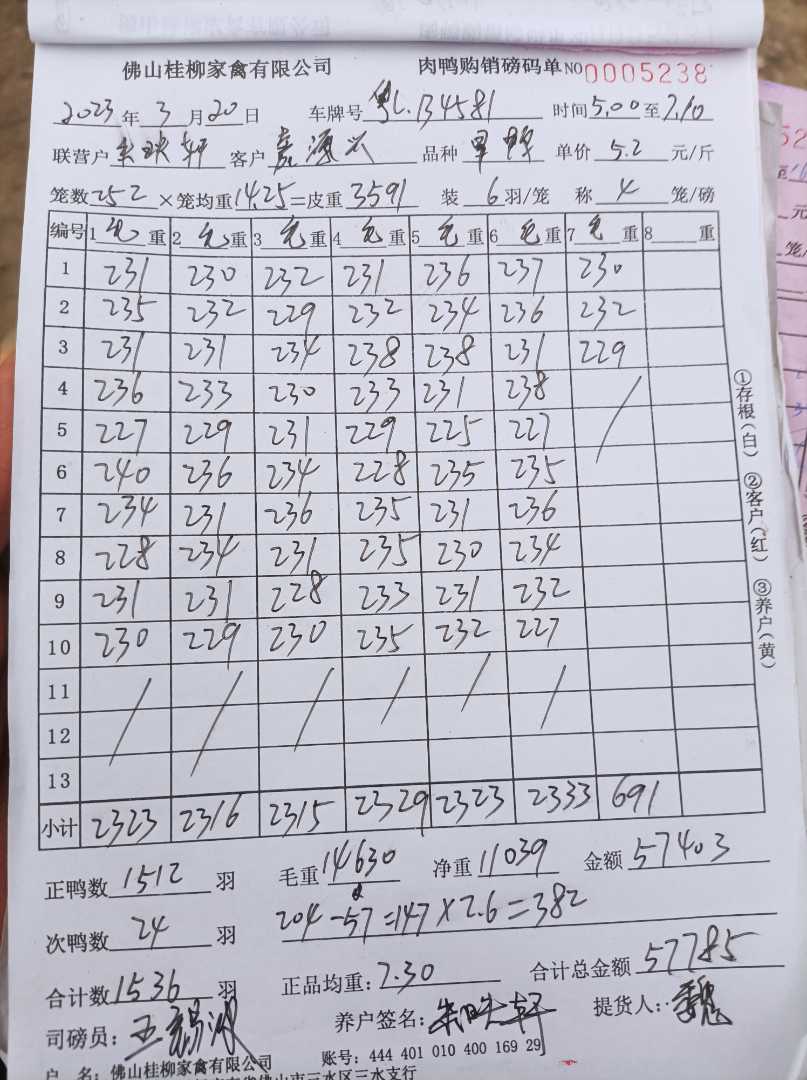 佛山桂柳家禽有限公司 肉鸭购销磅码单 NO 0005238
2023年 3月20日 车牌号 粤L.B4581 时间5.00至7.10
联营户 轩 客户 品种 单价 5.2 元/斤
笼数252×笼均重14.25=皮重3591 装 6 羽/笼 称 4 笼/磅
编号 1毛重 2毛重 3毛重 4毛重 5毛重 6毛重 7毛重 8 重
1 231 230 232 231 236 237 230
2 235 232 229 232 234 236 232
3 231 231 234 238 238 231 229
4 236 233 230 233 231 238 /
5 227 229 231 229 225 227
6 240 236 234 228 235 235
7 234 231 236 235 231 236
8 228 234 231 235 230 234
9 231 231 228 233 231 232
10 230 229 230 235 232 227
11 / / / / / /
12
13
小计 2323 2316 2315 2329 2323 2333 691
正鸭数 1512 羽 毛重 14630 净重 11039 金额 57403
次鸭数 24 羽 204-57=147×2.6=382
合计数 1536 羽 正品均重: 7.30 合计总金额 57785
司磅员: 王 养户签名: 轩 提货人: 魏
户 名: 佛山桂柳家禽有限公司 账号: 444 401 010 400 169 29
佛山市三水区三水支行
①存根(白) ②客户(红) ③养户(黄)